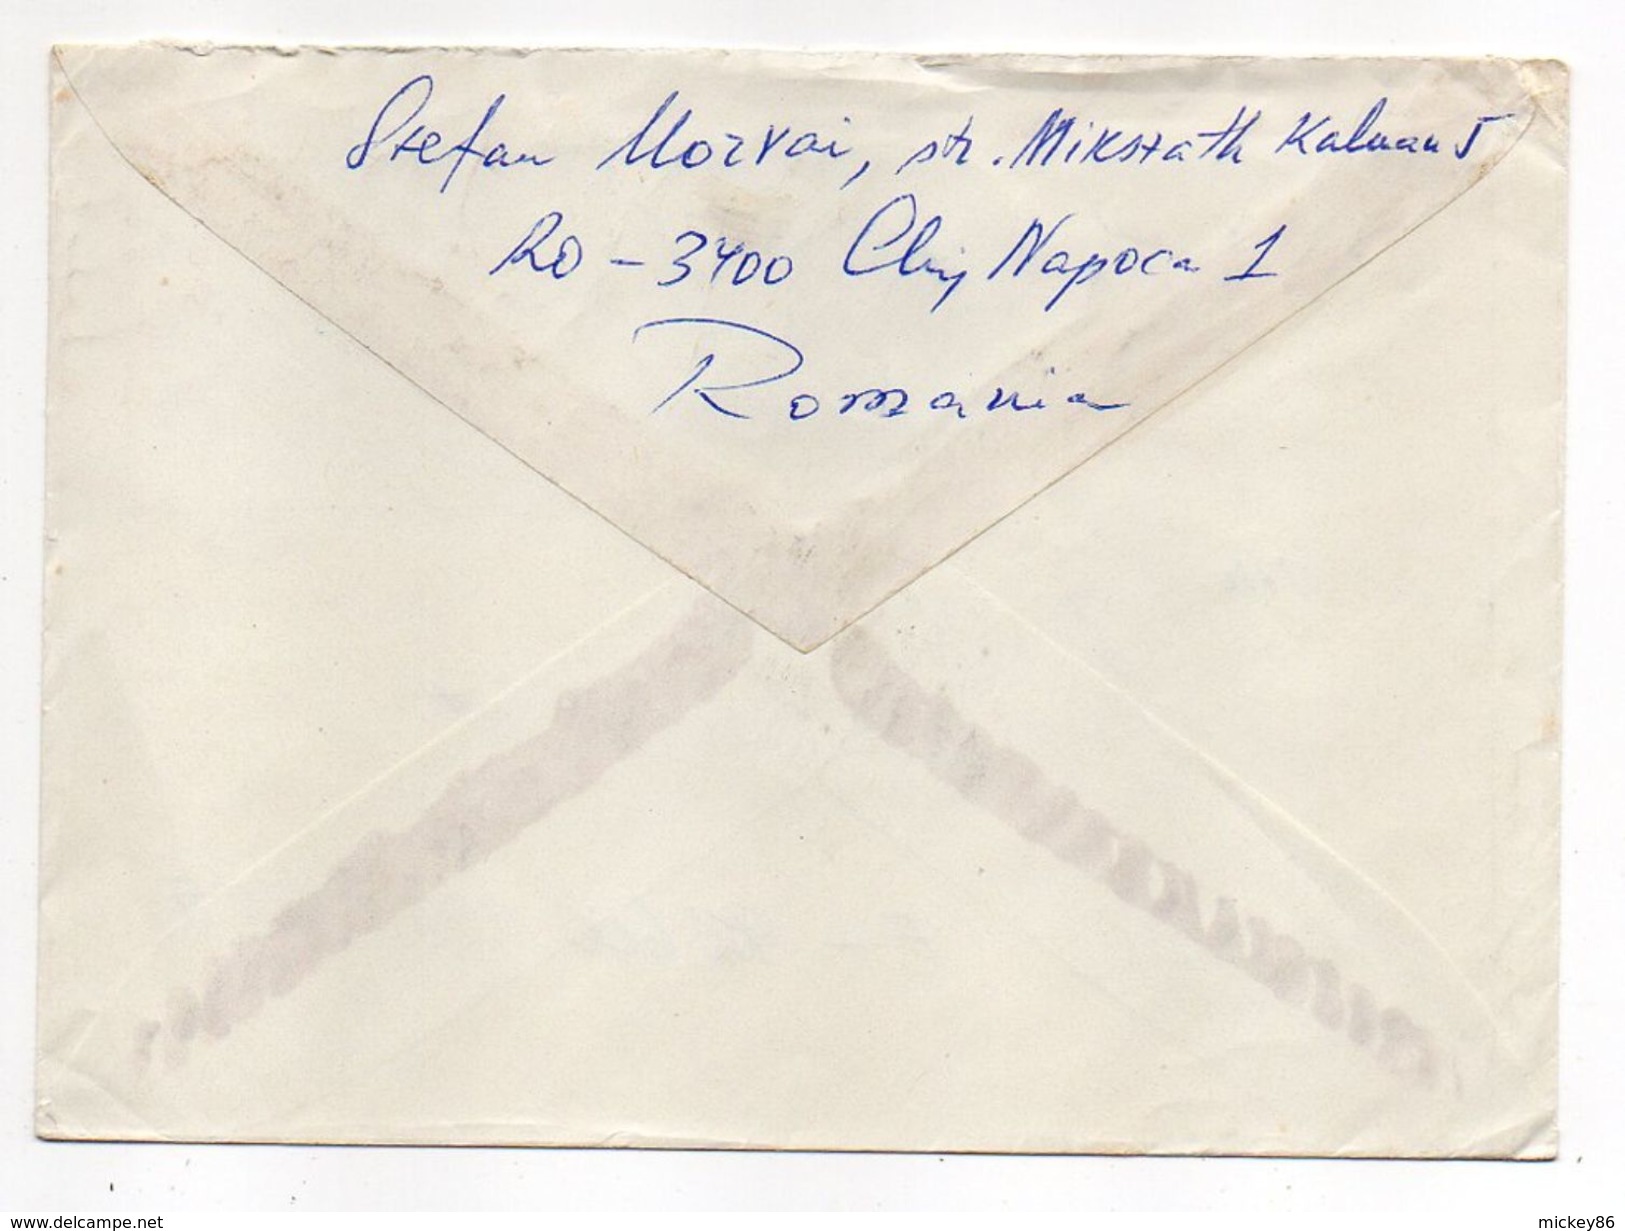 Stefan Morvai, str. Mikszath Kalman 5
RO - 3400 Cluj Napoca 1
Romania
www.delcampe.net
mickey86